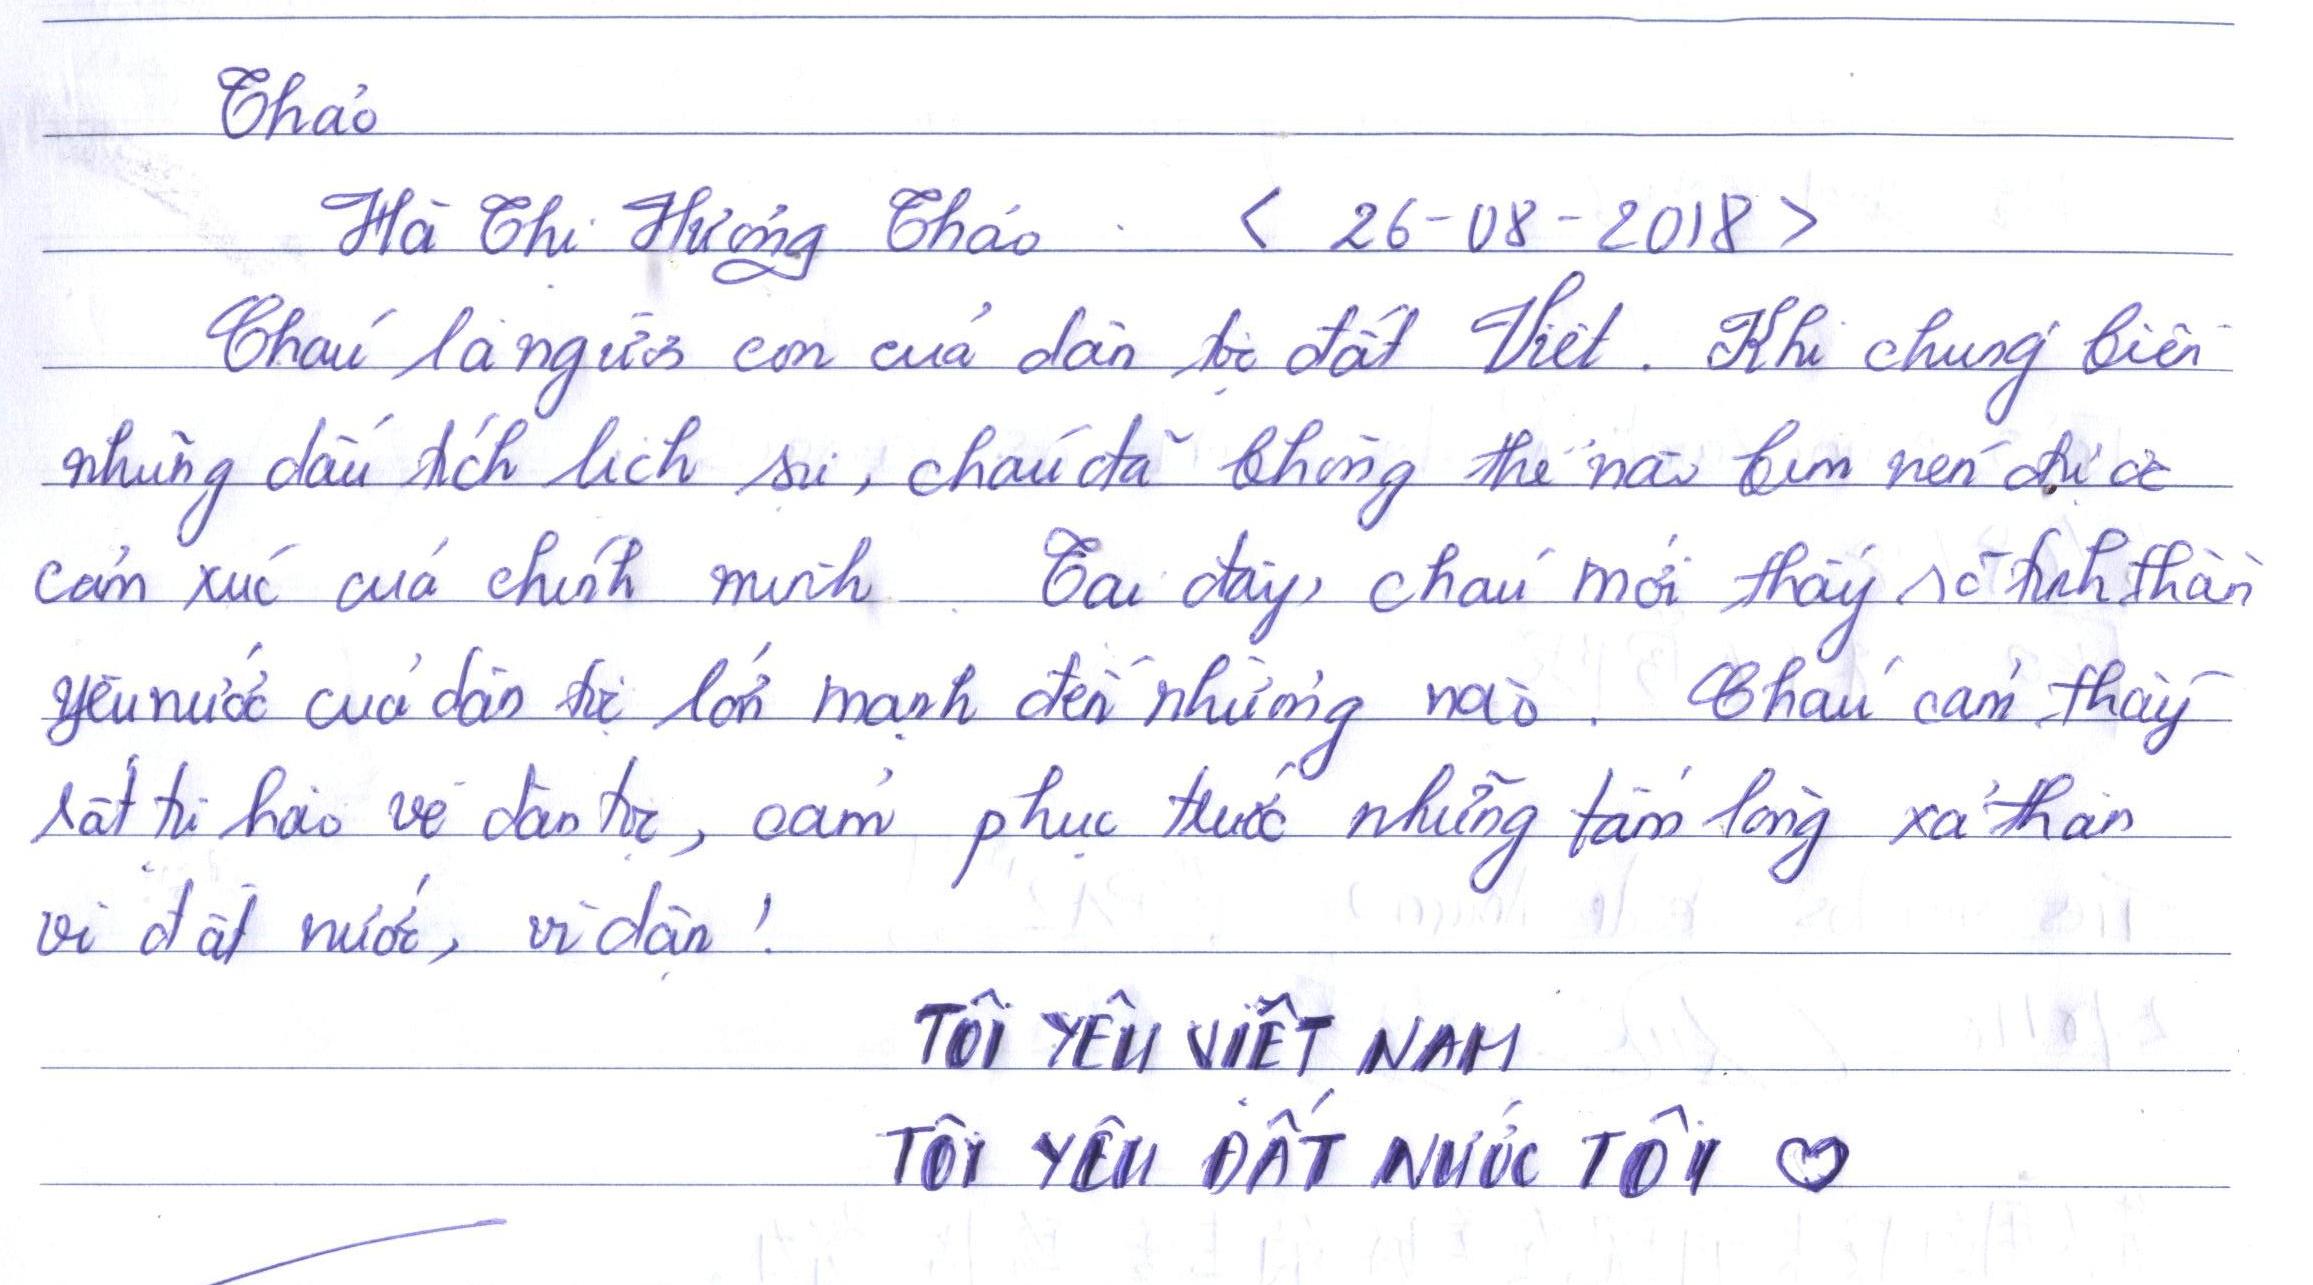 Thảo
Hà Thị Hương Thảo < 26-08-2018 >
Cháu là người con của dân tộc đất Việt. Khi chứng kiến
những dấu tích lịch sử, cháu đã không thể nào kìm nén được
cảm xúc của chính mình. Tại đây, cháu mới thấy rõ tinh thần
yêu nước của dân tộc lớn mạnh đến nhường nào. Cháu cảm thấy
rất tự hào về dân tộc, cảm phục trước những tấm lòng xả thân
vì đất nước, vì dân!
TÔI YÊU VIỆT NAM
TÔI YÊU ĐẤT NƯỚC TÔI ♡